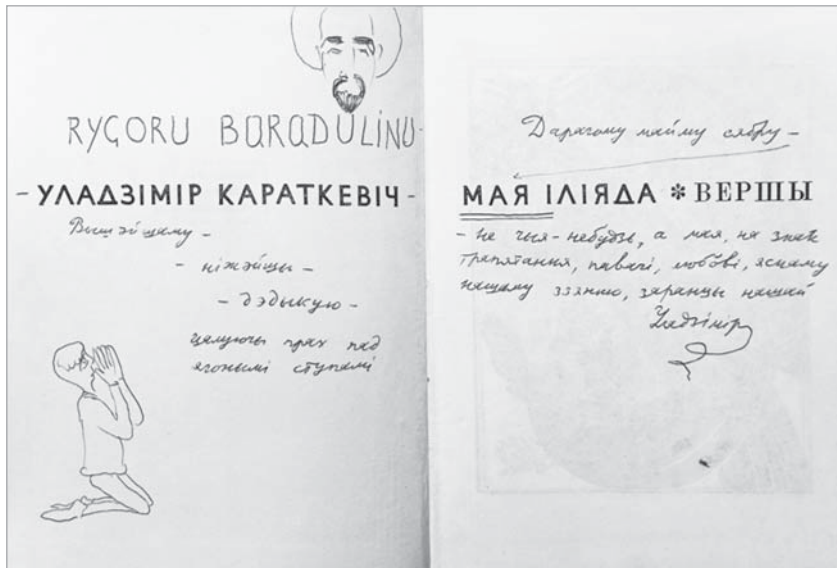 RYGORU BARADULINU-
- УЛАДЗІМІР КАРАТКЕВІЧ -
Вышэйшаму -
- ніжэйшы -
- дэдыкую -
цалуючы прах пад
ягонымі ступамі
Дарагому майму сябру -
МАЯ ІЛІЯДА * ВЕРШЫ
- не чыя-небудзь, а мая, на знак
трапятання, павагі, любові, яснаму
нашаму ззянню, заранцы нашай
Уладзімір